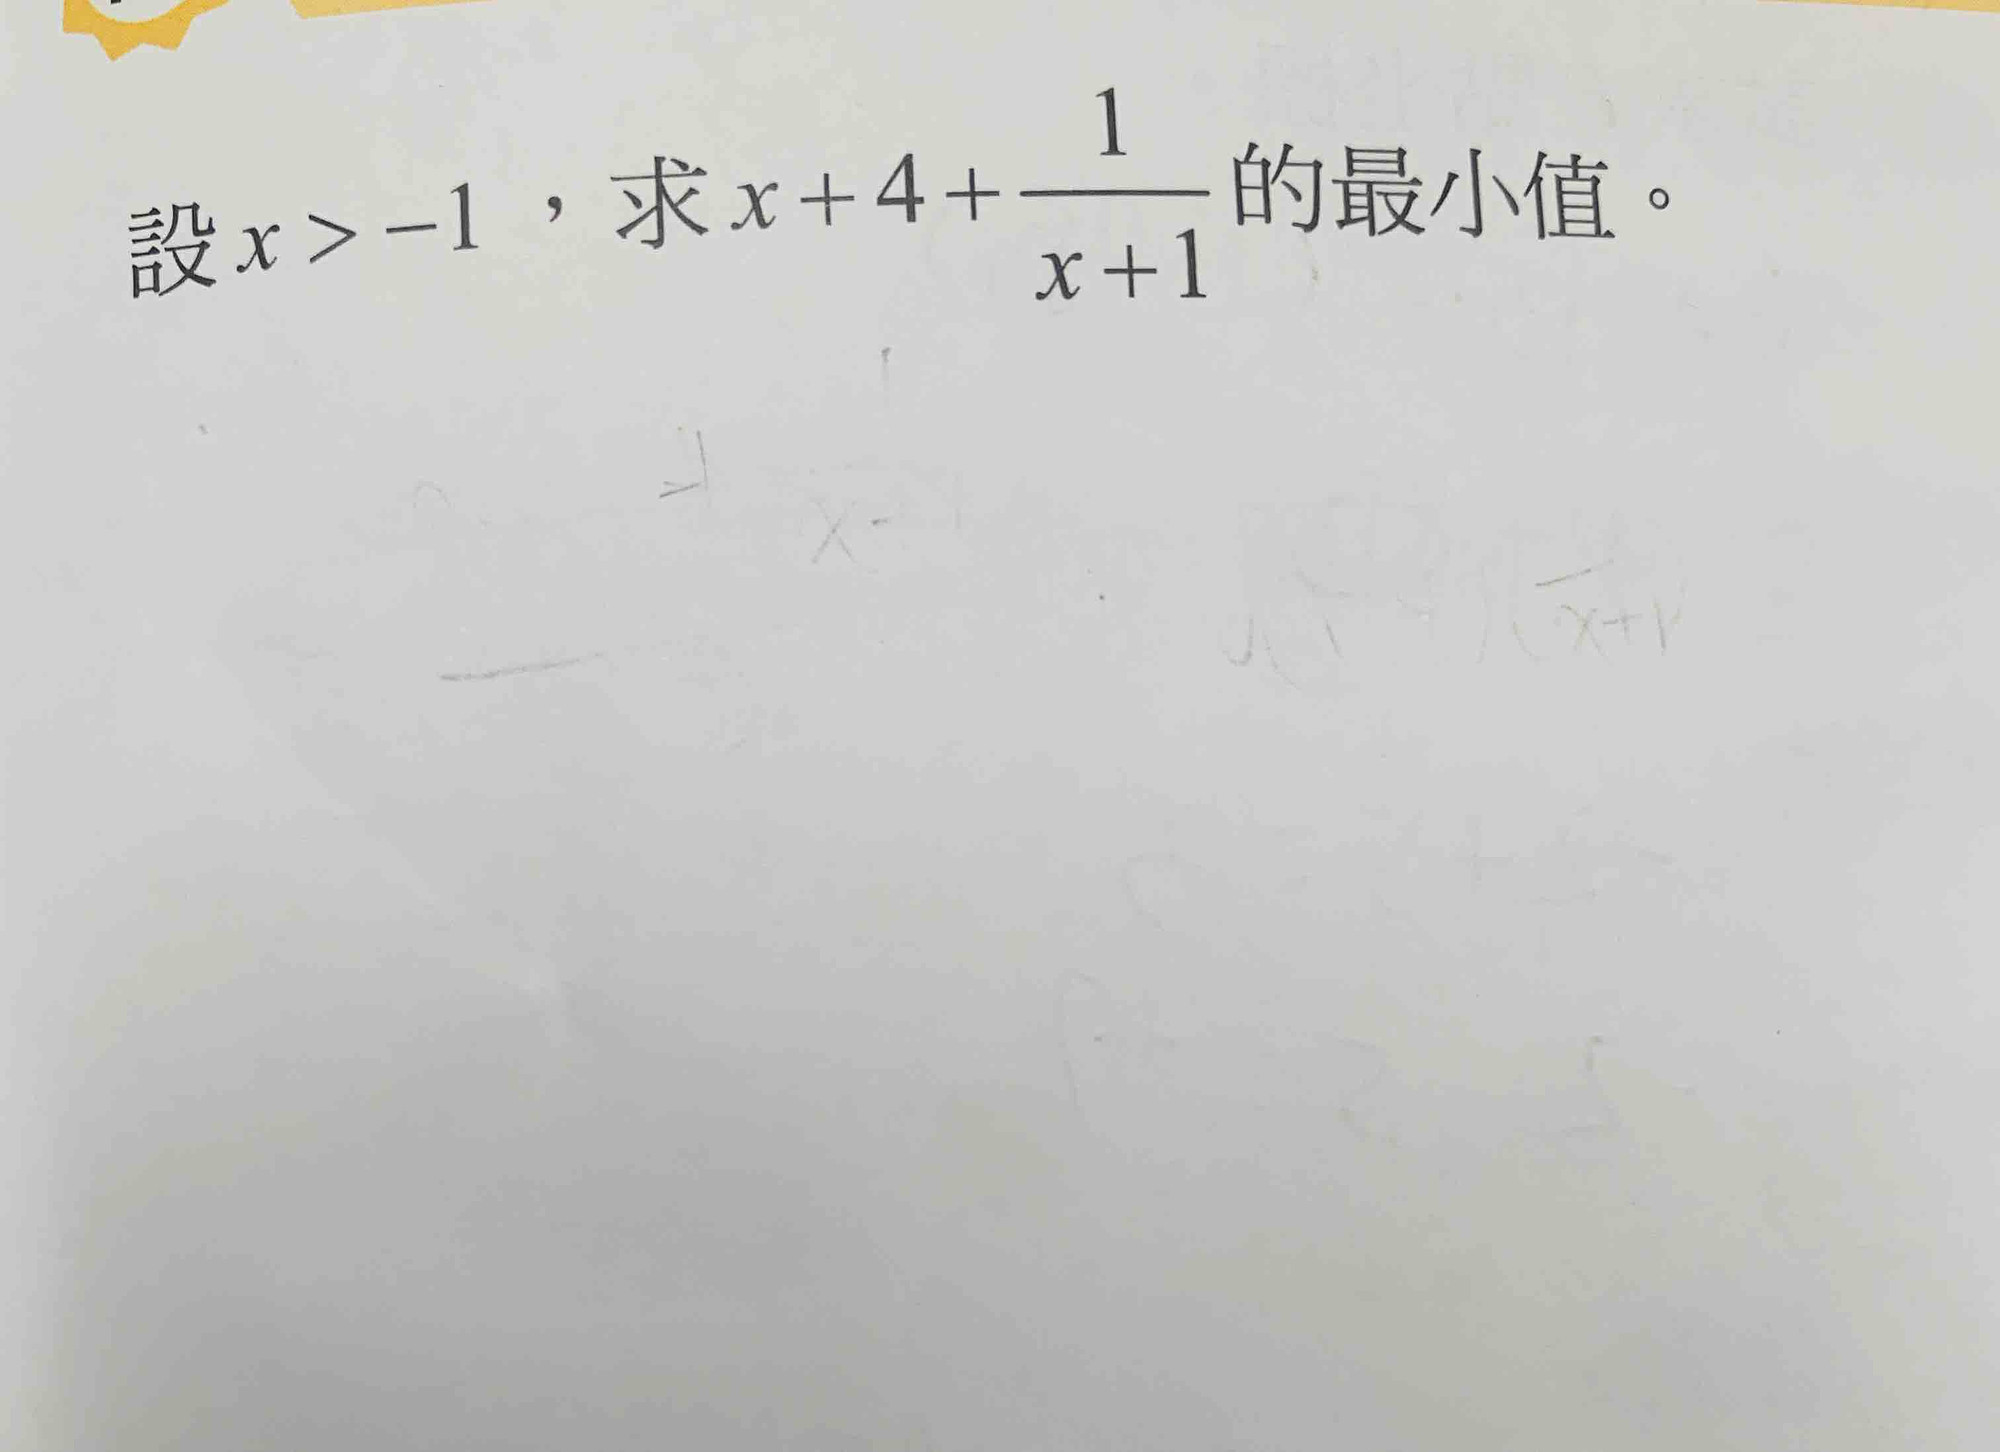 設 x > -1，求 x + 4 + \frac{1}{x+1} 的最小值。